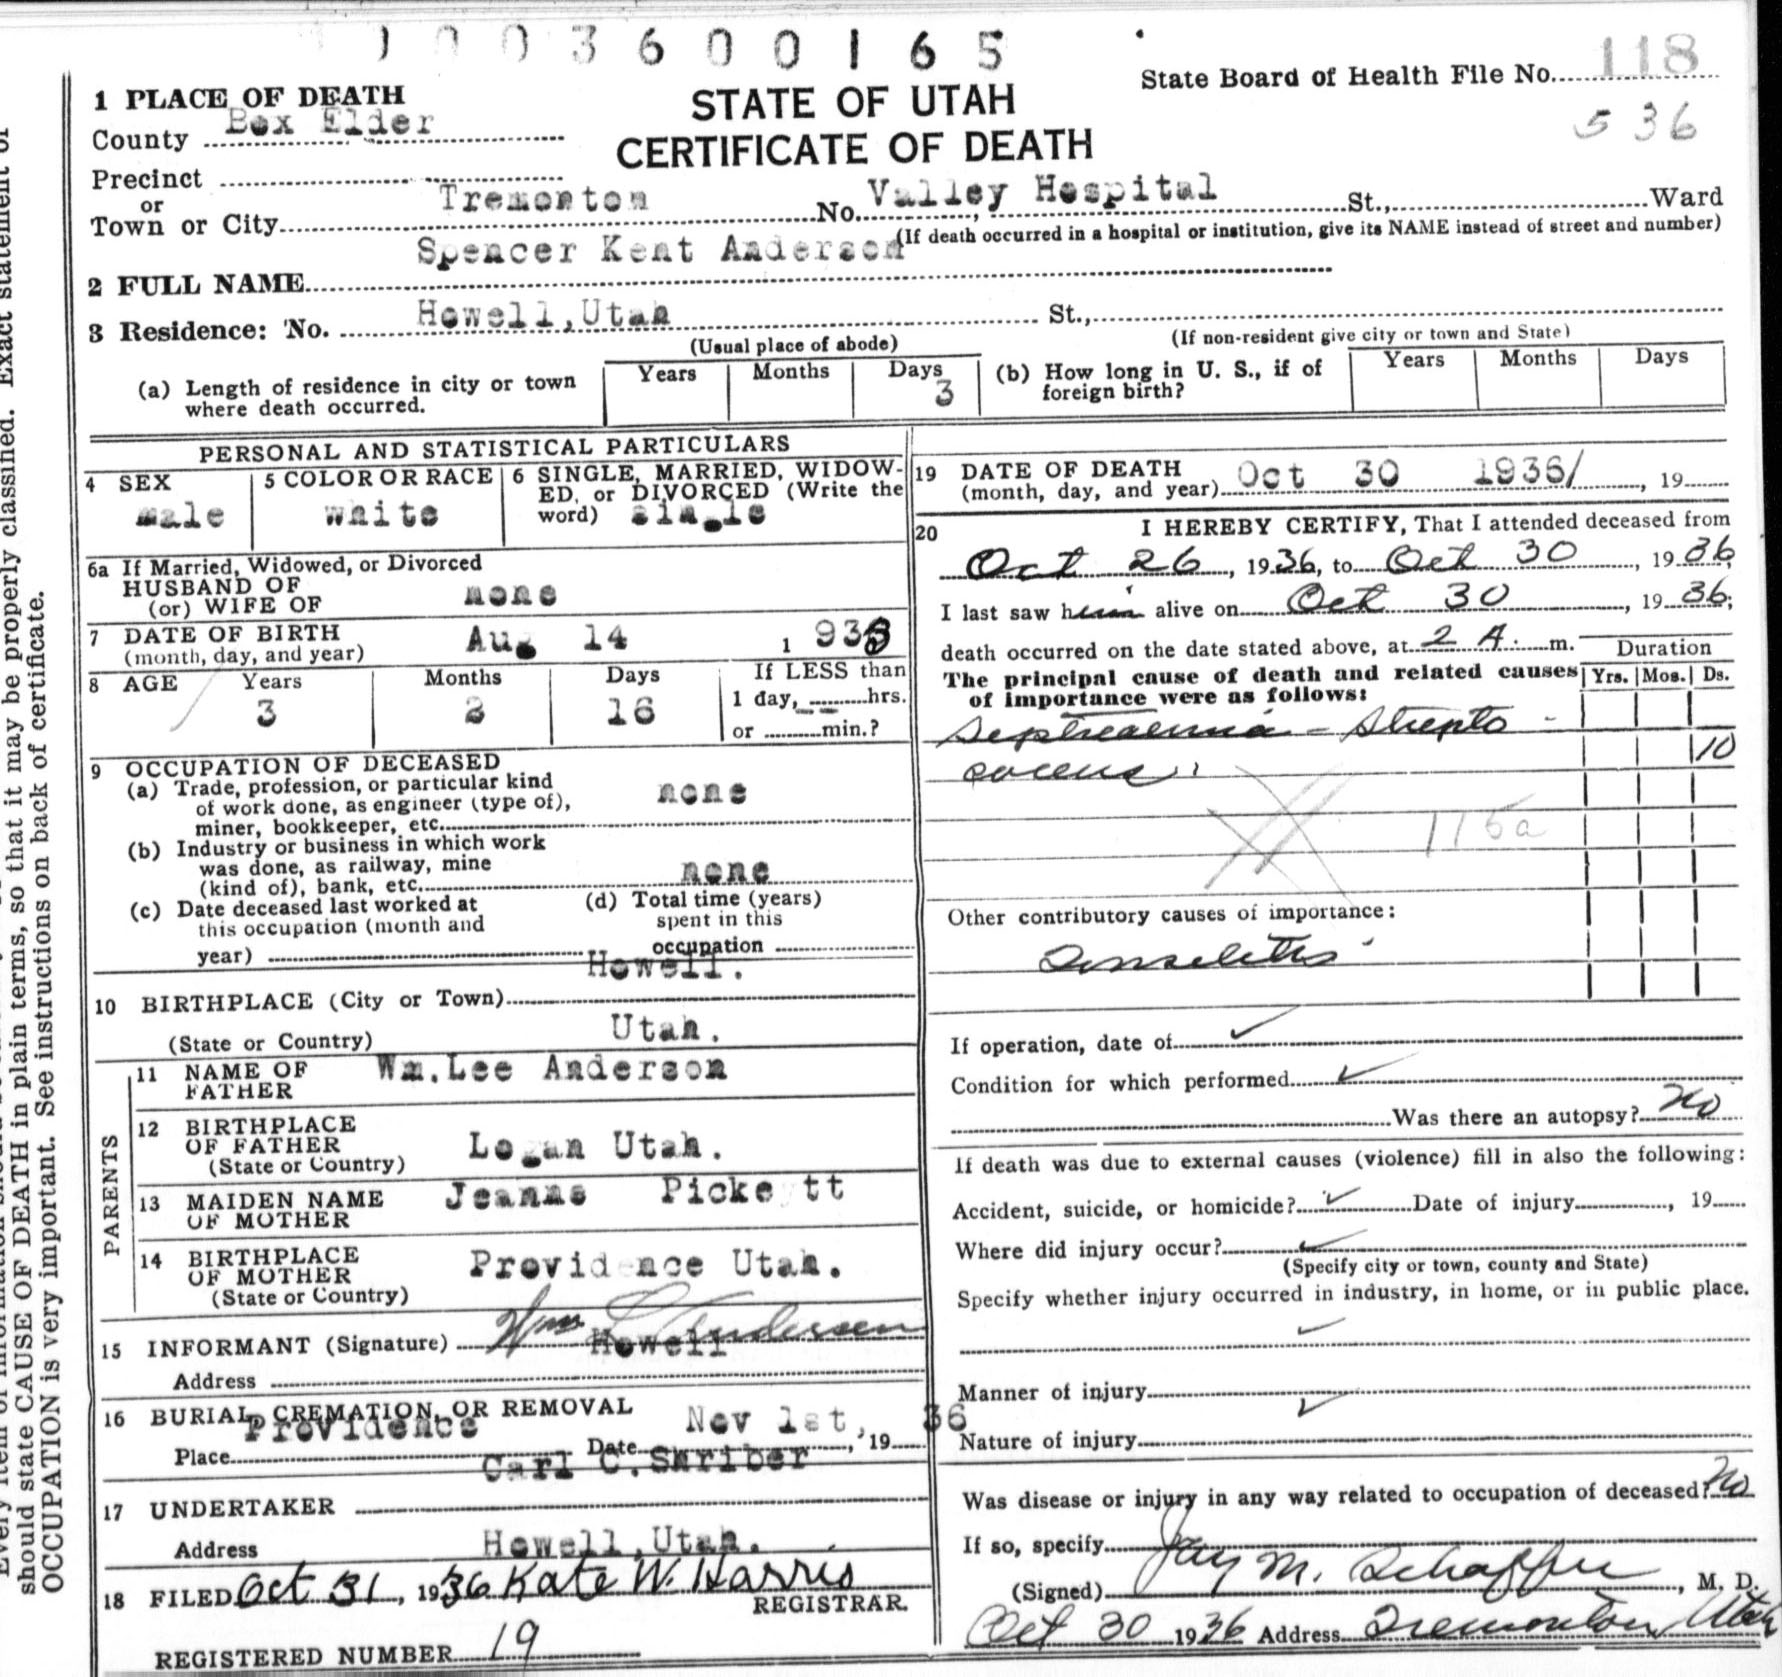 1003600165
State Board of Health File No. 118
536
1 PLACE OF DEATH
STATE OF UTAH
County Box Elder
CERTIFICATE OF DEATH
Precinct
or
Town or City Tremonton No. Valley Hospital St., Ward
(If death occurred in a hospital or institution, give its NAME instead of street and number)
2 FULL NAME Spencer Kent Anderson
3 Residence: No. Howell, Utah St.,
(Usual place of abode)
(If non-resident give city or town and State)
(a) Length of residence in city or town where death occurred. Years Months Days 3
(b) How long in U. S., if of foreign birth? Years Months Days
PERSONAL AND STATISTICAL PARTICULARS
4 SEX male
5 COLOR OR RACE white
6 SINGLE, MARRIED, WIDOWED, or DIVORCED (Write the word) single
6a If Married, Widowed, or Divorced
HUSBAND OF
(or) WIFE OF none
7 DATE OF BIRTH
(month, day, and year) Aug 14 1933
8 AGE Years 3 Months 2 Days 16
If LESS than
1 day, hrs.
or min.?
9 OCCUPATION OF DECEASED
(a) Trade, profession, or particular kind
of work done, as engineer (type of),
miner, bookkeeper, etc. none
(b) Industry or business in which work
was done, as railway, mine
(kind of), bank, etc. none
(c) Date deceased last worked at
this occupation (month and
year)
(d) Total time (years)
spent in this
occupation
10 BIRTHPLACE (City or Town) Howell.
(State or Country) Utah.
PARENTS
11 NAME OF
FATHER Wm. Lee Anderson
12 BIRTHPLACE
OF FATHER
(State or Country) Logan Utah.
13 MAIDEN NAME
OF MOTHER Jeanne Pickett
14 BIRTHPLACE
OF MOTHER
(State or Country) Providence Utah.
15 INFORMANT (Signature) Wm L Andersen
Address Howell
16 BURIAL, CREMATION, OR REMOVAL
Place Providence Date Nov 1st, 1936
17 UNDERTAKER Carl C. Shriber
Address Howell, Utah.
18 FILED Oct 31, 1936 Kate W. Harris
REGISTRAR.
REGISTERED NUMBER 19
19 DATE OF DEATH
(month, day, and year) Oct 30 1936/ , 19
20 I HEREBY CERTIFY, That I attended deceased from
Oct 26, 1936, to Oct 30, 1936,
I last saw him alive on Oct 30, 1936;
death occurred on the date stated above, at 2 A. m.
Duration
The principal cause of death and related causes
of importance were as follows:
Yrs. Mos. Ds.
Septicaemia - Strepto-
coccus. 10
115a
Other contributory causes of importance:
Tonselitis
If operation, date of
Condition for which performed
Was there an autopsy? No
If death was due to external causes (violence) fill in also the following:
Accident, suicide, or homicide? Date of injury , 19
Where did injury occur?
(Specify city or town, county and State)
Specify whether injury occurred in industry, in home, or in public place.
Manner of injury
Nature of injury
Was disease or injury in any way related to occupation of deceased? No
If so, specify
(Signed) Jay M. Schaffer, M. D.
Oct 30 1936 Address Tremonton Utah
should state CAUSE OF DEATH in plain terms, so that it may be properly classified. Exact statement of
OCCUPATION is very important. See instructions on back of certificate.